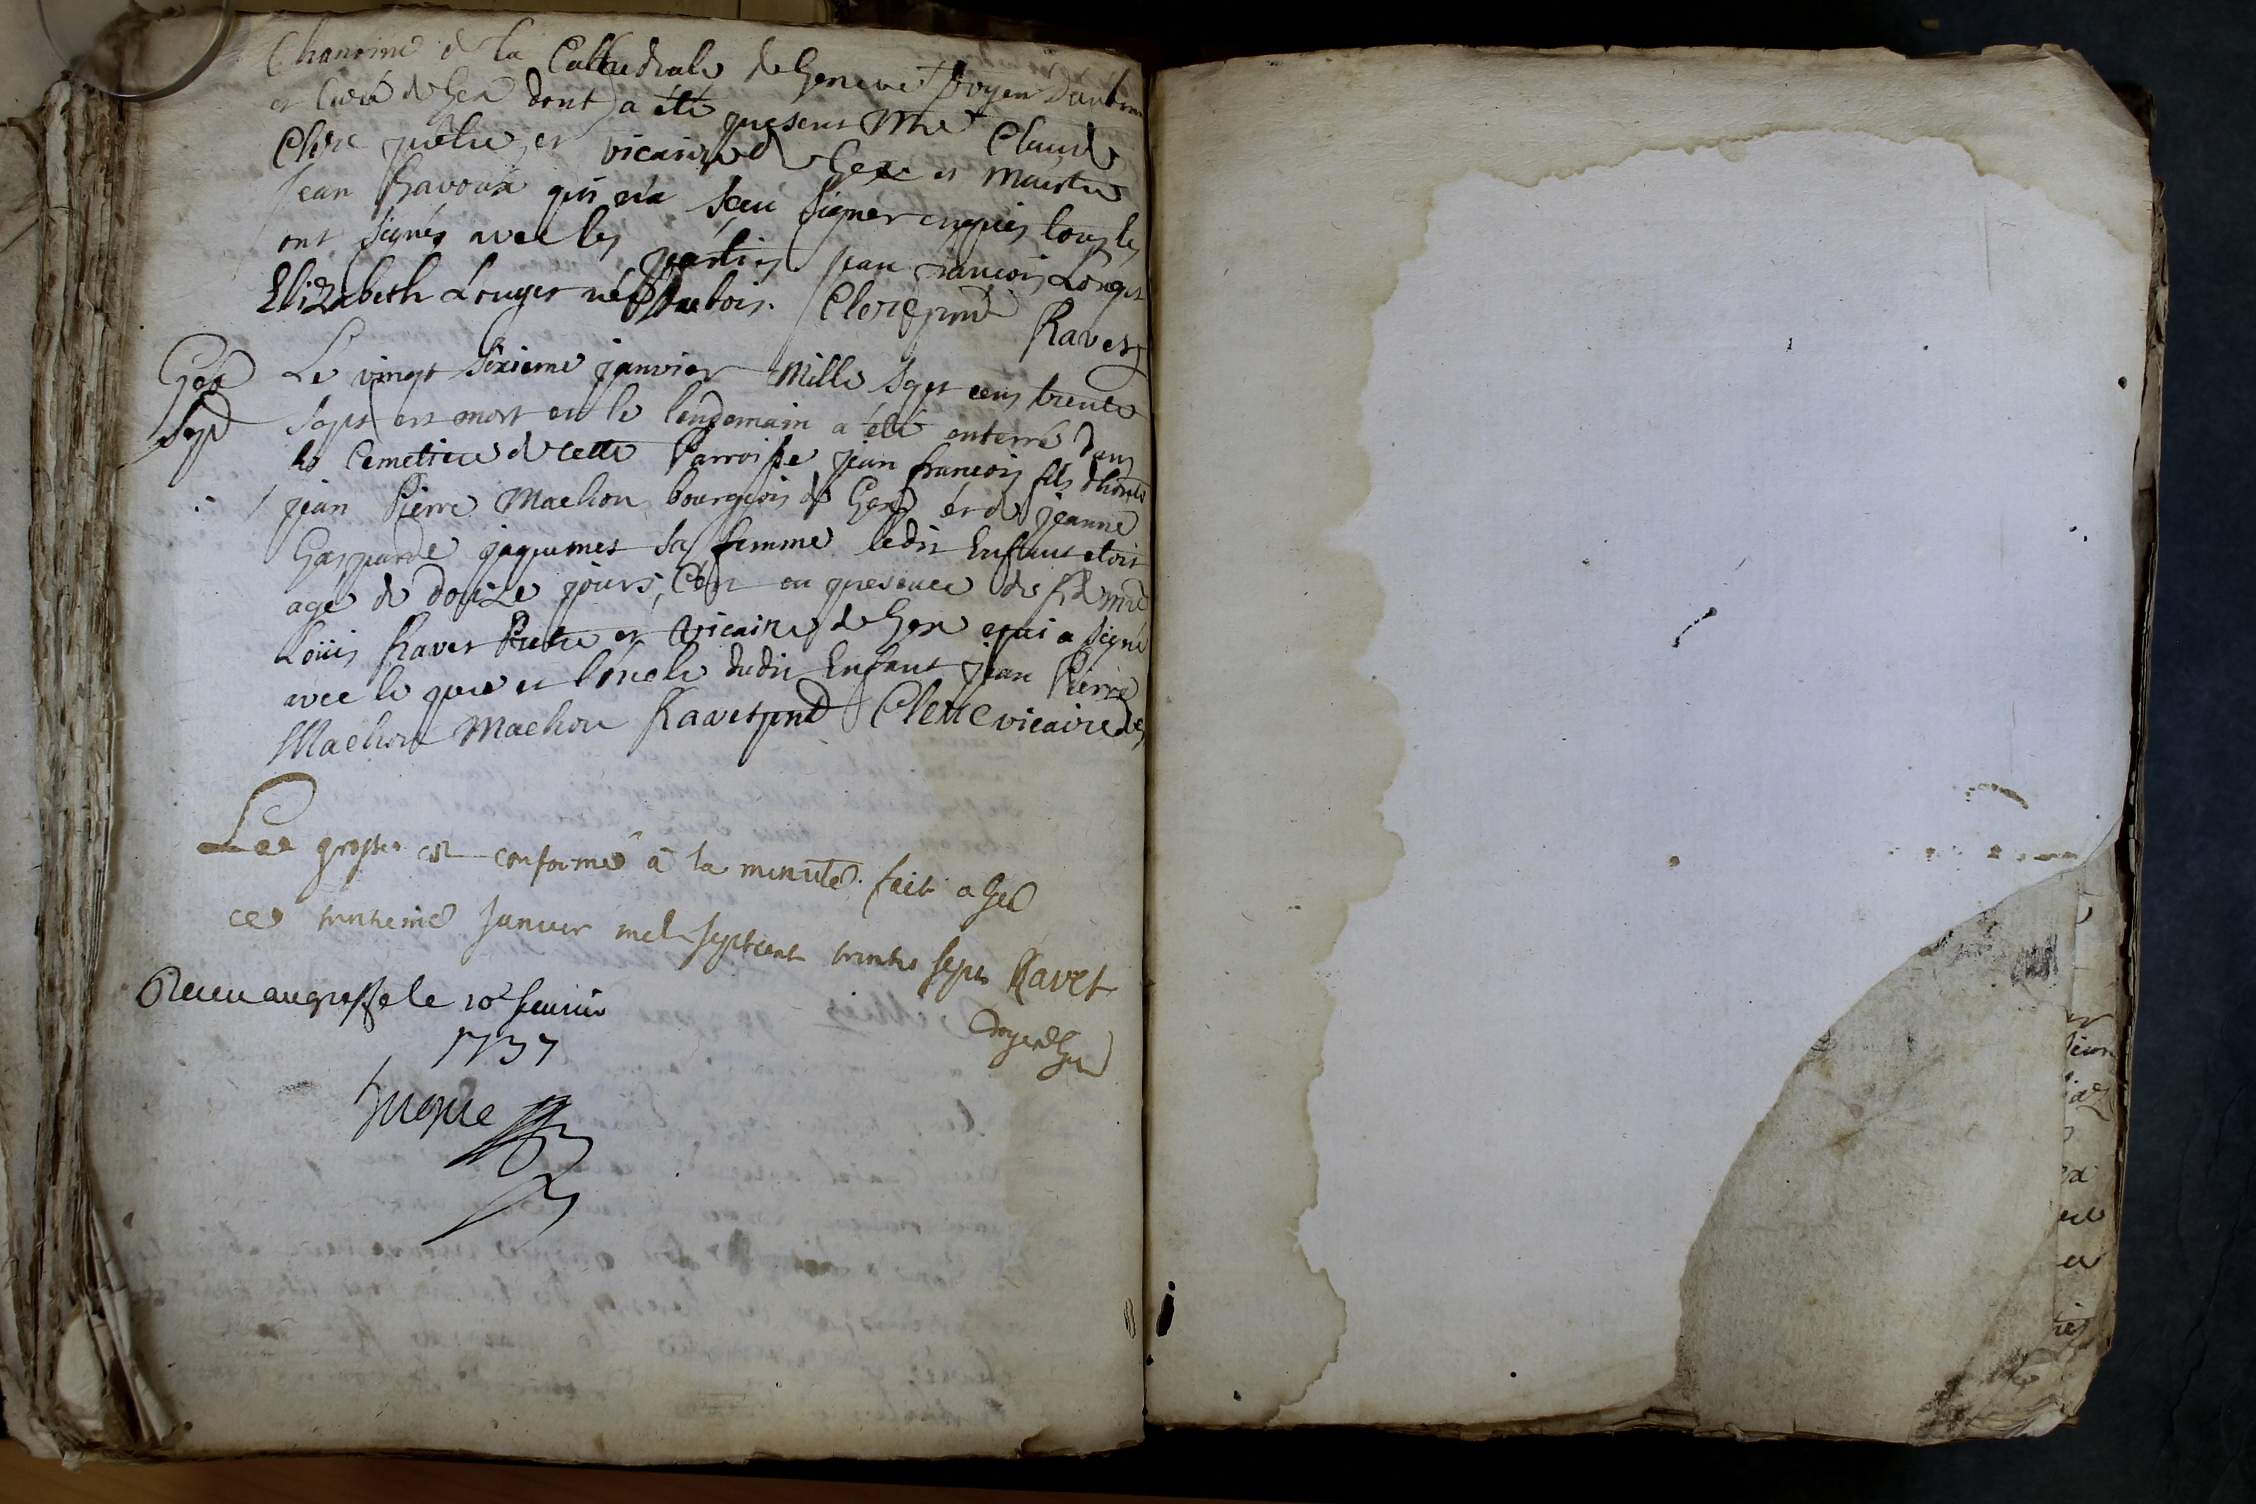 Chanoine de la Cathedrale de Geneve Doyen Daubonne
et Curé de Gex dont a été present Mre Claude
Clerc pretre et vicaire de Gex et Maistre
Jean Ravoux qui n'a sceu signer enquis tous les
ont signés avec les parties. Jean francois Longet
Elizabeth Longet née Dubois. Clerc pnt
Ravet
Gex
Sep
Le vingt sixieme janvier Mille sept cens trente
Sept est mort et le lendemain a été enterré dans
le Cemetiere de cette Parroisse jean francois fils d'honle
jean Pierre Machon bourgeois de Gex et de jeanne
Gasparde jaquemet sa femme ledit Enfant etoit
agé de douze jours, C'est en presence de Mre
Loüis Ravet Pretre et vicaire de Gex qui a signé
avec le pere et l'oncle dudit Enfant jean Pierre
Machon Machon Ravet pnt Clerc vicaire
La grosse est conforme à la minute. fait a Gex
ce trentieme Janvier mil sept cent trente sept Ravet
doyen de Gex
Receu au greffe le 10e feurier
1737